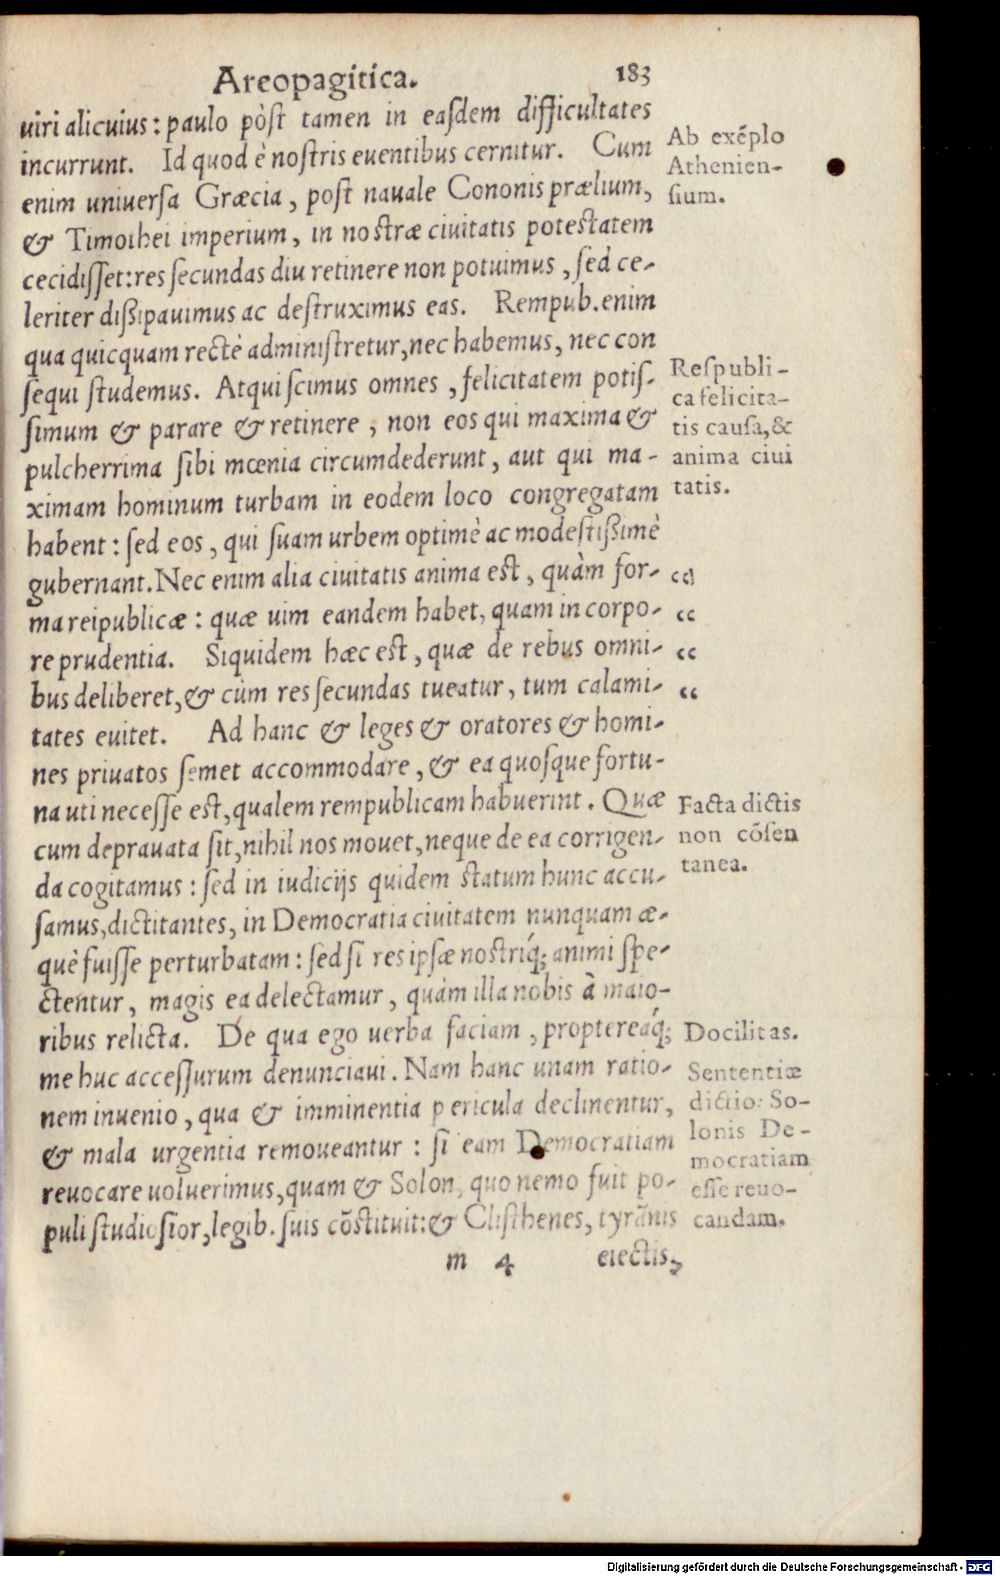 Areopagitica. 183
uiri alicuius: paulo pòst tamen in easdem difficultates
incurrunt. Id quod è nostris euentibus cernitur. Cum
enim uniuersa Græcia, post nauale Cononis prælium,
& Timothei imperium, in nostræ ciuitatis potestatem
cecidisset: res secundas diu retinere non potuimus, sed ce-
leriter dißipauimus ac destruximus eas. Rempub. enim
qua quicquam rectè administretur, nec habemus, nec con
sequi studemus. Atqui scimus omnes, felicitatem potis-
simum & parare & retinere, non eos qui maxima &
pulcherrima sibi mœnia circumdederunt, aut qui ma-
ximam hominum turbam in eodem loco congregatam
habent: sed eos, qui suam urbem optimè ac modestißimè
gubernant. Nec enim alia ciuitatis anima est, quàm for-
ma reipublicæ: quæ uim eandem habet, quam in corpo-
re prudentia. Siquidem hæc est, quæ de rebus omni-
bus deliberet, & cùm res secundas tueatur, tum calami-
tates euitet. Ad hanc & leges & oratores & homi-
nes priuatos semet accommodare, & ea quosque fortu-
na uti necesse est, qualem rempublicam habuerint. Quæ
cum deprauata sit, nihil nos mouet, neque de ea corrigen-
da cogitamus: sed in iudicijs quidem statum hunc accu-
samus, dictitantes, in Democratia ciuitatem nunquam æ-
què fuisse perturbatam: sed si res ipsæ nostríq; animi spe-
ctentur, magis ea delectamur, quàm illa nobis à maio-
ribus relicta. De qua ego uerba faciam, proptereáq;
me huc accessurum denunciaui. Nam hanc unam ratio-
nem inuenio, qua & imminentia pericula declinentur,
& mala urgentia remoueantur: si eam Democratiam
reuocare uoluerimus, quam & Solon, quo nemo fuit po-
puli studiosior, legib. suis cõstituit: & Clisthenes, tyrãnis
m 4 eiectis,
Ab exẽplo
Athenien-
sium.
Respubli-
ca felicita-
tis causa, &
anima ciui
tatis.
“
“
“
“
Facta dictis
non cõsen
tanea.
Docilitas.
Sententiæ
dictio: So-
lonis De-
mocratiam
esse reuo-
candam.
Digitalisierung gefördert durch die Deutsche Forschungsgemeinschaft - DFG